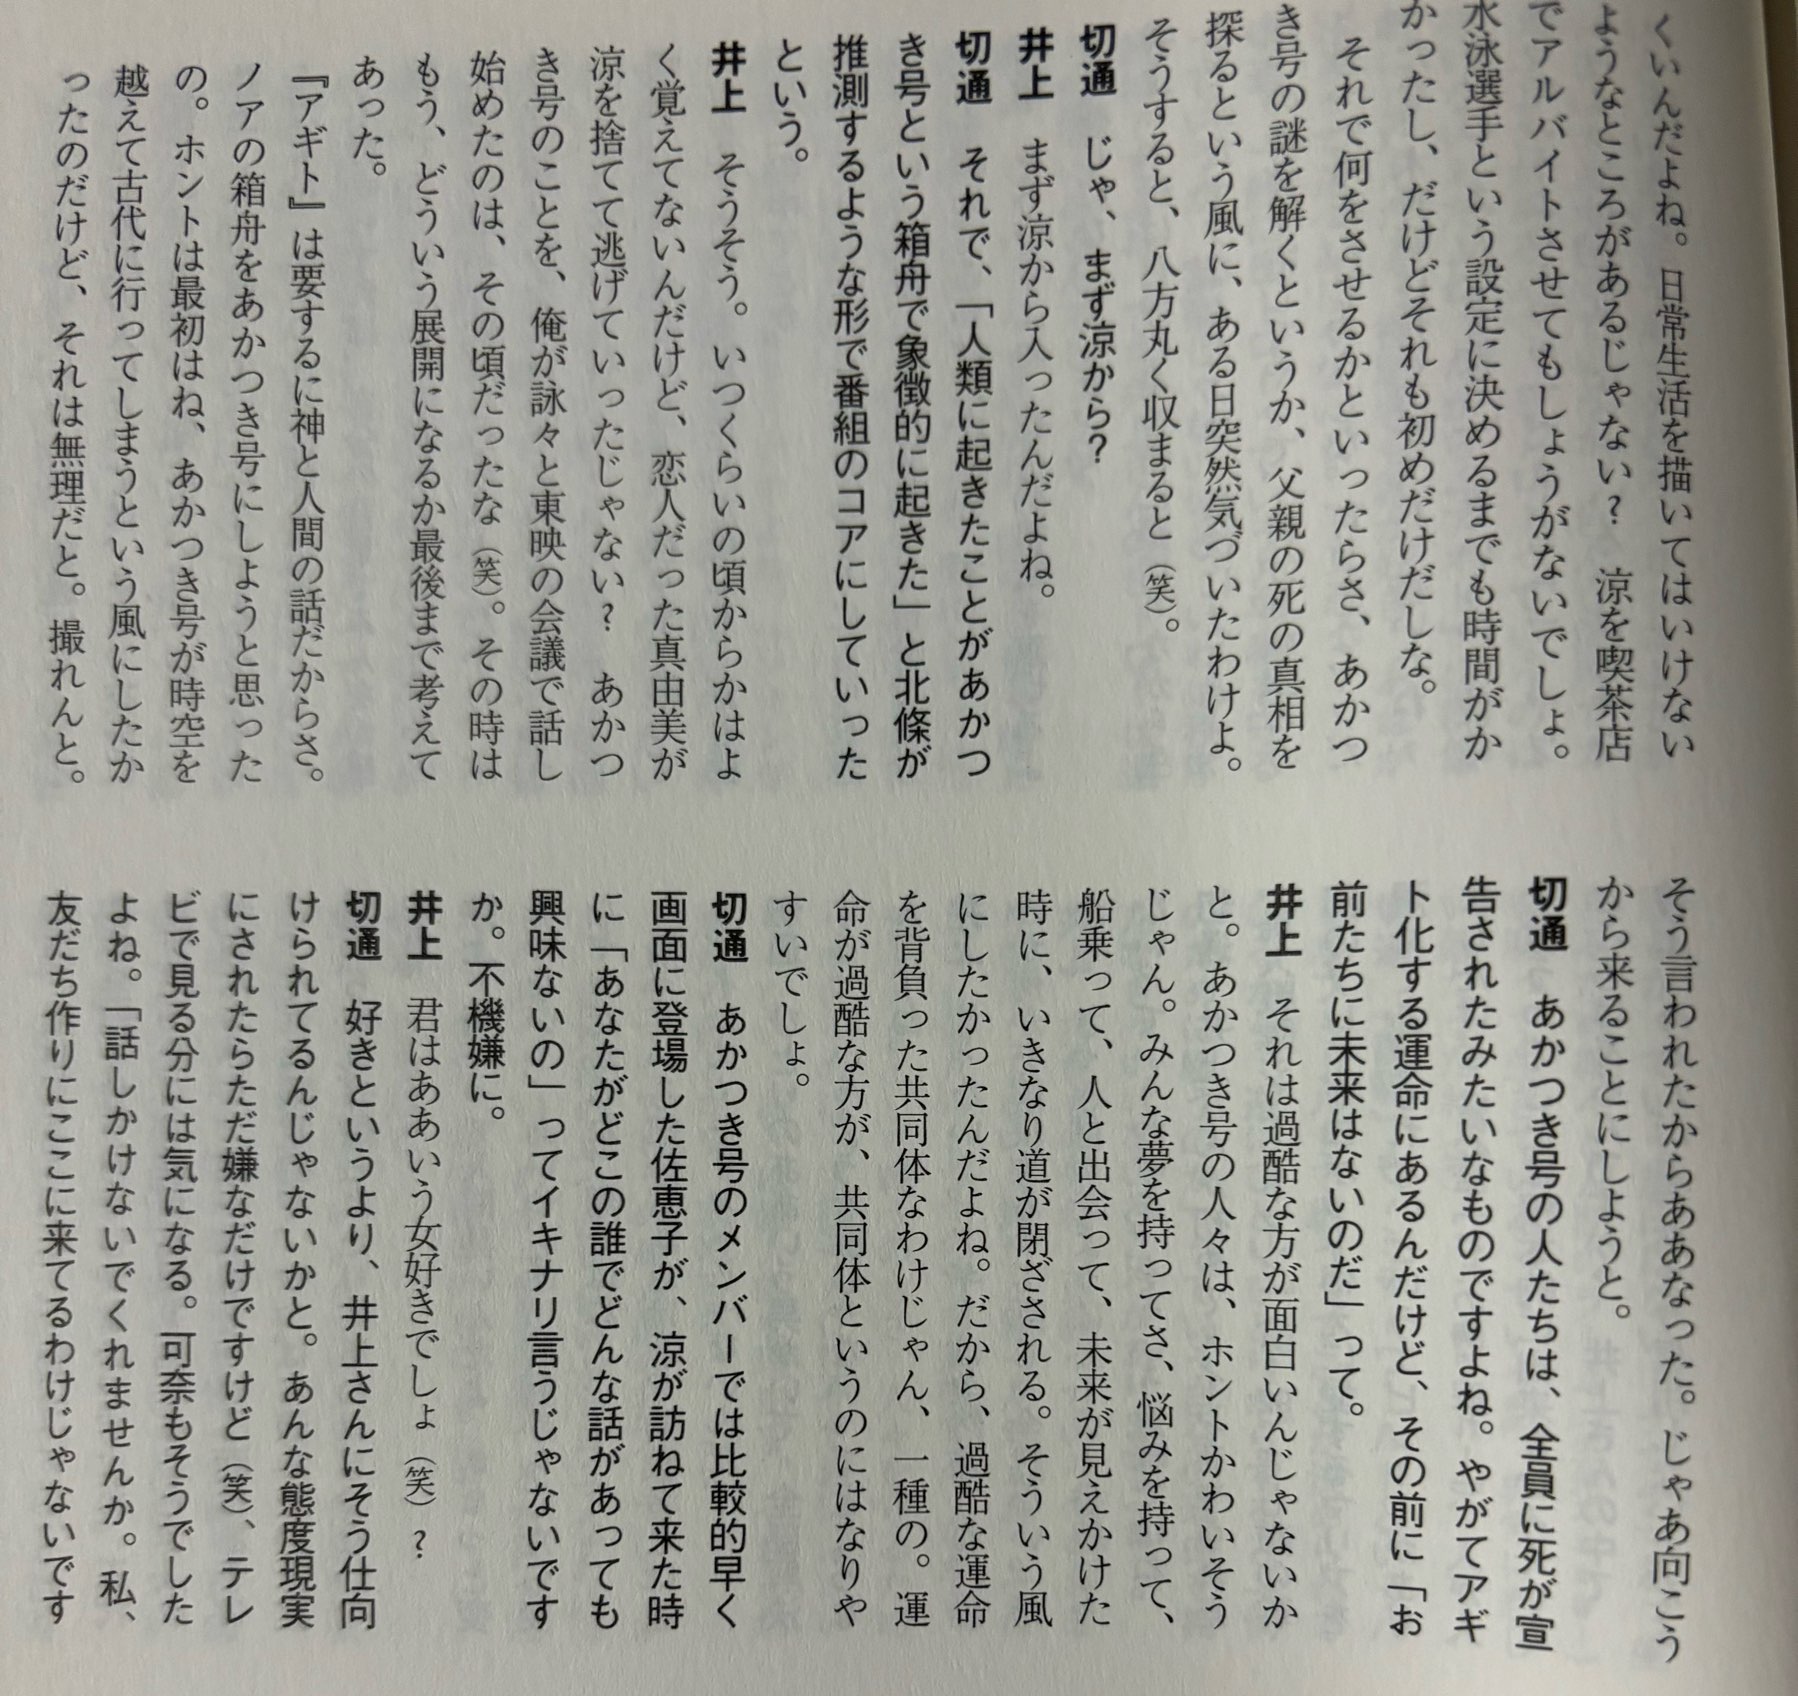 くいんだよね。日常生活を描いてはいけない
ようなところがあるじゃない？　涼を喫茶店
でアルバイトさせてもしょうがないでしょ。
水泳選手という設定に決めるまでも時間がか
かったし、だけどそれも初めだけだしな。
　それで何をさせるかといったらさ、あかつ
き号の謎を解くというか、父親の死の真相を
探るという風に、ある日突然気づいたわけよ。
そうすると、八方丸く収まると（笑）。
切通　じゃ、まず涼から？
井上　まず涼から入ったんだよね。
切通　それで、「人類に起きたことがあかつ
き号という箱舟で象徴的に起きた」と北條が
推測するような形で番組のコアにしていった
という。
井上　そうそう。いつくらいの頃からかはよ
く覚えてないんだけど、恋人だった真由美が
涼を捨てて逃げていったじゃない？　あかつ
き号のことを、俺が詠々と東映の会議で話し
始めたのは、その頃だったな（笑）。その時は
もう、どういう展開になるか最後まで考えて
あった。
『アギト』は要するに神と人間の話だからさ。
ノアの箱舟をあかつき号にしようと思った
の。ホントは最初はね、あかつき号が時空を
越えて古代に行ってしまうという風にしたか
ったのだけど、それは無理だと。撮れんと。
そう言われたからああなった。じゃあ向こう
から来ることにしようと。
切通　あかつき号の人たちは、全員に死が宣
告されたみたいなものですよね。やがてアギ
ト化する運命にあるんだけど、その前に「お
前たちに未来はないのだ」って。
井上　それは過酷な方が面白いんじゃないか
と。あかつき号の人々は、ホントかわいそう
じゃん。みんな夢を持ってさ、悩みを持って、
船乗って、人と出会って、未来が見えかけた
時に、いきなり道が閉ざされる。そういう風
にしたかったんだよね。だから、過酷な運命
を背負った共同体なわけじゃん、一種の。運
命が過酷な方が、共同体というのにはなりや
すいでしょ。
切通　あかつき号のメンバーでは比較的早く
画面に登場した佐恵子が、涼が訪ねて来た時
に「あなたがどこの誰でどんな話があっても
興味ないの」ってイキナリ言うじゃないです
か。不機嫌に。
井上　君はああいう女好きでしょ（笑）？
切通　好きというより、井上さんにそう仕向
けられてるんじゃないかと。あんな態度現実
にされたらただ嫌なだけですけど（笑）、テレ
ビで見る分には気になる。可奈もそうでした
よね。「話しかけないでくれませんか。私、
友だち作りにここに来てるわけじゃないです